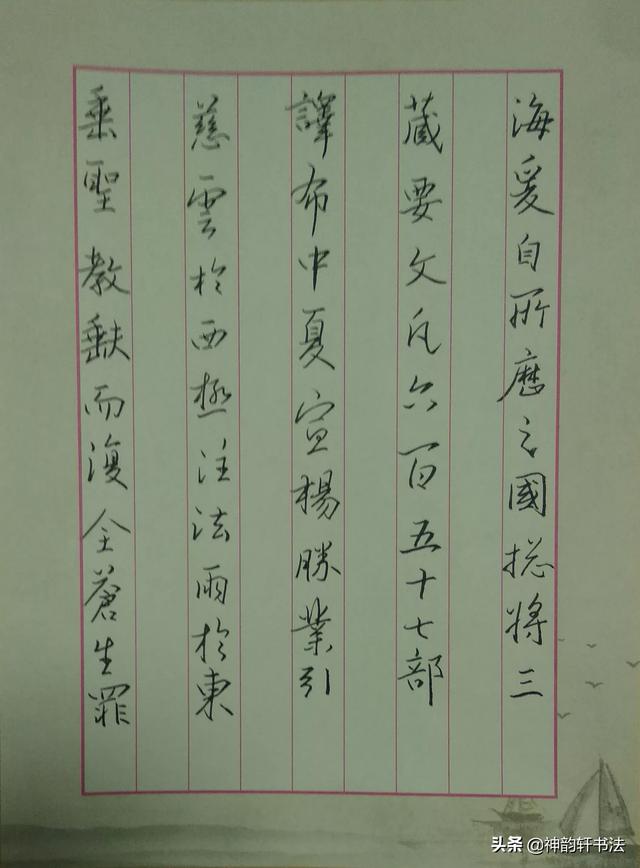 海爰自所歷之國捴將三
藏要文凡六百五十七部
譯布中夏宣楊勝業引
慈雲於西極注法雨於東
垂聖教缺而復全蒼生罪
头条@神韵轩书法